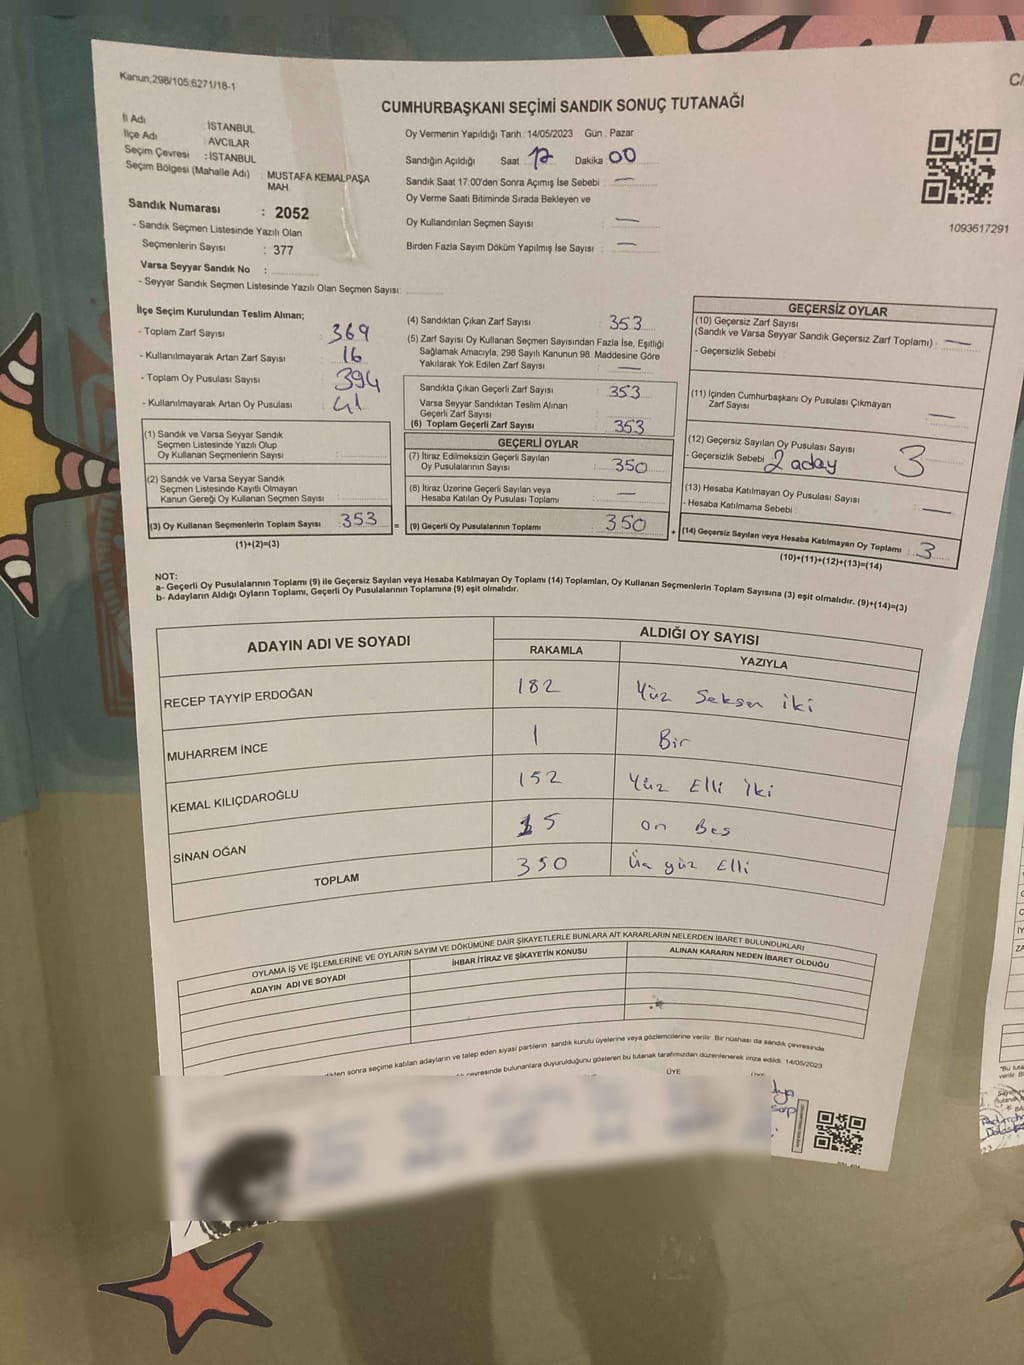 Kanun,298/105;6271/18-1
C/
CUMHURBAŞKANI SEÇİMİ SANDIK SONUÇ TUTANAĞI
İl Adı : İSTANBUL
İlçe Adı : AVCILAR
Seçim Çevresi : İSTANBUL
Seçim Bölgesi (Mahalle Adı) : MUSTAFA KEMALPAŞA MAH.
Sandık Numarası : 2052
- Sandık Seçmen Listesinde Yazılı Olan
Seçmenlerin Sayısı : 377
Varsa Seyyar Sandık No :
- Seyyar Sandık Seçmen Listesinde Yazılı Olan Seçmen Sayısı:
Oy Vermenin Yapıldığı Tarih : 14/05/2023 Gün : Pazar
Sandığın Açıldığı Saat 17 Dakika 00
Sandık Saat 17.00'den Sonra Açımış İse Sebebi : —
Oy Verme Saati Bitiminde Sırada Bekleyen ve
Oy Kullandırılan Seçmen Sayısı : —
Birden Fazla Sayım Döküm Yapılmış İse Sayısı : —
1093617291
İlçe Seçim Kurulundan Teslim Alınan;
- Toplam Zarf Sayısı : 369
- Kullanılmayarak Artan Zarf Sayısı : 16
- Toplam Oy Pusulası Sayısı : 394
- Kullanılmayarak Artan Oy Pusulası : 41
(1) Sandık ve Varsa Seyyar Sandık
Seçmen Listesinde Yazılı Olup
Oy Kullanan Seçmenlerin Sayısı :
(2) Sandık ve Varsa Seyyar Sandık
Seçmen Listesinde Kayıtlı Olmayan
Kanun Gereği Oy Kullanan Seçmen Sayısı :
(3) Oy Kullanan Seçmenlerin Toplam Sayısı : 353
(1)+(2)=(3)
=
(4) Sandıktan Çıkan Zarf Sayısı : 353
(5) Zarf Sayısı Oy Kullanan Seçmen Sayısından Fazla İse, Eşitliği
Sağlamak Amacıyla, 298 Sayılı Kanunun 98. Maddesine Göre
Yakılarak Yok Edilen Zarf Sayısı : —
Sandıkta Çıkan Geçerli Zarf Sayısı : 353
Varsa Seyyar Sandıktan Teslim Alınan
Geçerli Zarf Sayısı :
(6) Toplam Geçerli Zarf Sayısı : 353
GEÇERLİ OYLAR
(7) İtiraz Edilmeksizin Geçerli Sayılan
Oy Pusulalarının Sayısı : 350
(8) İtiraz Üzerine Geçerli Sayılan veya
Hesaba Katılan Oy Pusulası Toplamı : —
(9) Geçerli Oy Pusulalarının Toplamı : 350
+
GEÇERSİZ OYLAR
(10) Geçersiz Zarf Sayısı
(Sandık ve Varsa Seyyar Sandık Geçersiz Zarf Toplamı) : —
- Geçersizlik Sebebi :
(11) İçinden Cumhurbaşkanı Oy Pusulası Çıkmayan
Zarf Sayısı : —
(12) Geçersiz Sayılan Oy Pusulası Sayısı : 3
- Geçersizlik Sebebi : 2 aday
(13) Hesaba Katılmayan Oy Pusulası Sayısı : —
- Hesaba Katılmama Sebebi :
(14) Geçersiz Sayılan veya Hesaba Katılmayan Oy Toplamı : 3
(10)+(11)+(12)+(13)=(14)
NOT:
a- Geçerli Oy Pusulalarının Toplamı (9) ile Geçersiz Sayılan veya Hesaba Katılmayan Oy Toplamı (14) Toplamları, Oy Kullanan Seçmenlerin Toplam Sayısına (3) eşit olmalıdır. (9)+(14)=(3)
b- Adayların Aldığı Oyların Toplamı, Geçerli Oy Pusulalarının Toplamına (9) eşit olmalıdır.
ADAYIN ADI VE SOYADI
ALDIĞI OY SAYISI
RAKAMLA YAZIYLA
RECEP TAYYİP ERDOĞAN 182 Yüz Seksen iki
MUHARREM İNCE 1 Bir
KEMAL KILIÇDAROĞLU 152 Yüz Elli İki
SİNAN OĞAN 15 on Bes
TOPLAM 350 Üç yüz Elli
OYLAMA İŞ VE İŞLEMLERİNE VE OYLARIN SAYIM VE DÖKÜMÜNE DAİR ŞİKAYETLERLE BUNLARA AİT KARARLARIN NELERDEN İBARET BULUNDUKLARI
ADAYIN ADI VE SOYADI İHBAR İTİRAZ VE ŞİKAYETİN KONUSU ALINAN KARARIN NEDEN İBARET OLDUĞU
sonra seçime katılan adayların ve talep eden siyasi partilerin sandık kurulu üyelerine veya gözlemcilerine verilir. Bir nüshası da sandık çevresinde
çevresinde bulunanlara duyurulduğunu gösteren bu tutanak tarafımızdan düzenlenerek imza edildi. 14/05/2023
ÜYE